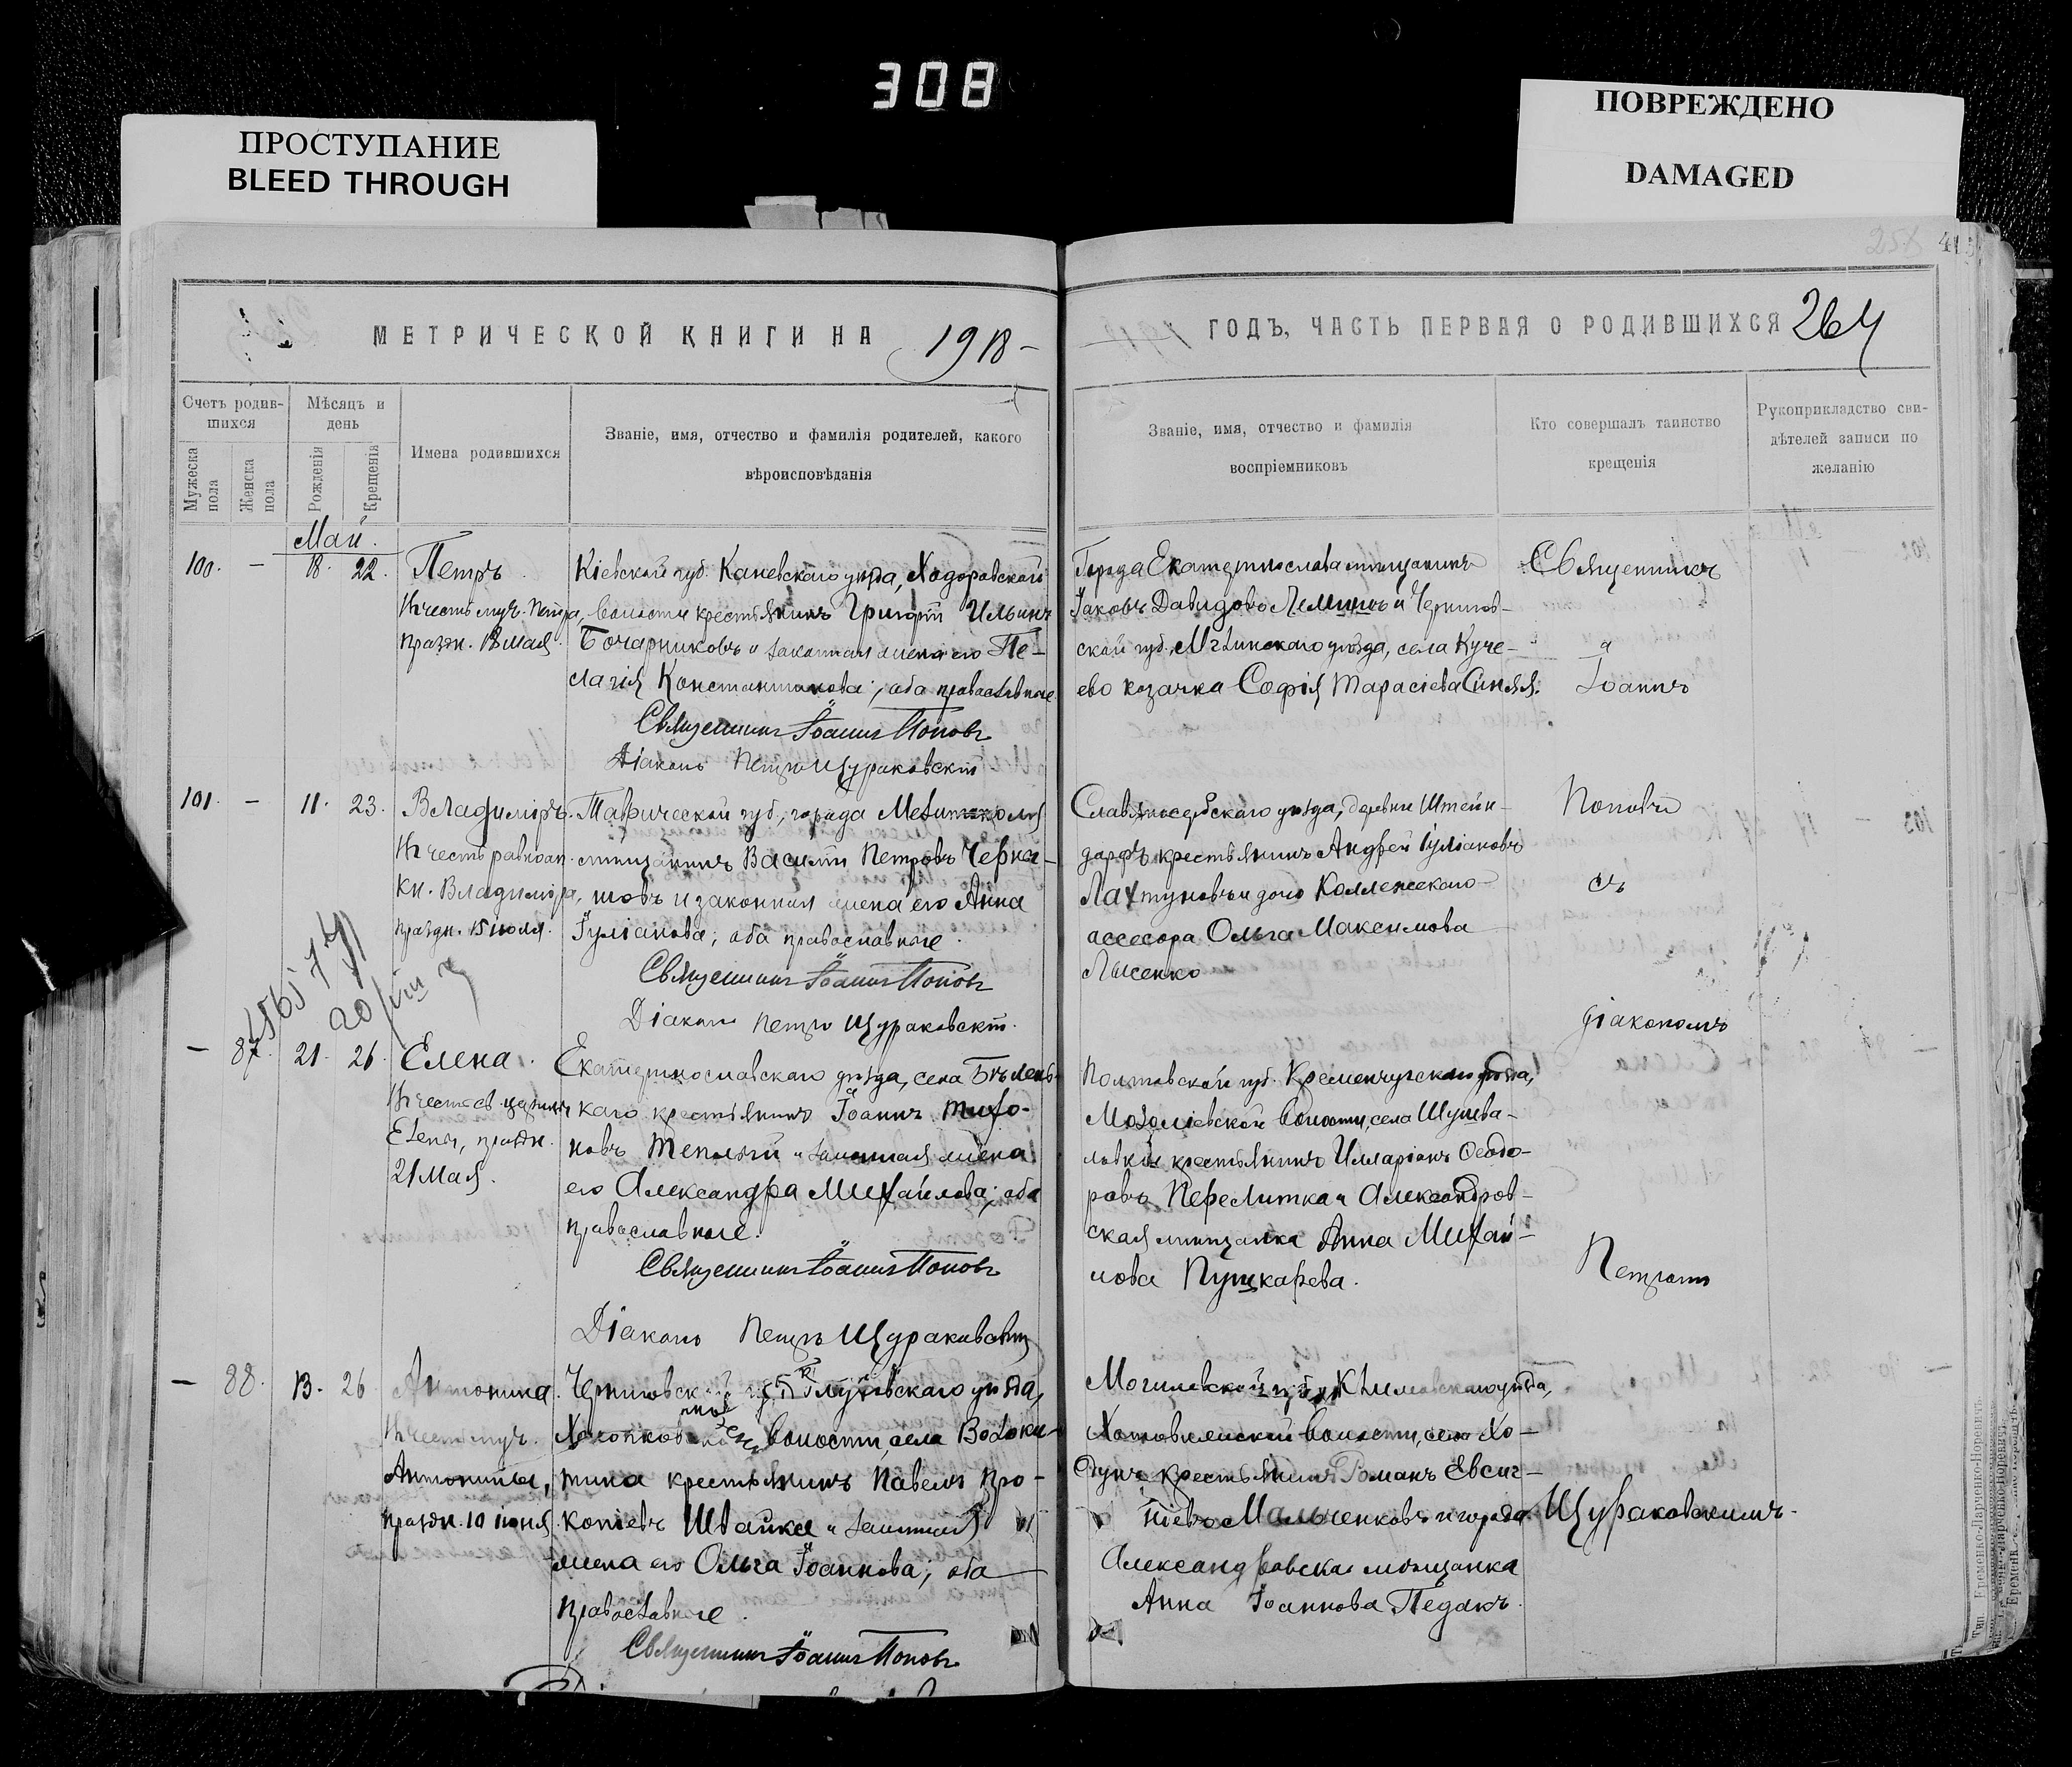 308
ПРОСТУПАНИЕ
BLEED THROUGH
ПОВРЕЖДЕНО
DAMAGED
МЕТРИЧЕСКОЙ КНИГИ НА 1918
Счетъ родив-
шихся
Мужеска пола
Женска пола
Мѣсяцъ и
день
Рожденія
Крещенія
Имена родившихся
Званіе, имя, отчество и фамилія родителей, какого
вѣроисповѣданія
Май.
100. — 18. 22. Петръ
Въ честь муч. Петра,
праздн. 18 мая.
Кіевской губ. Каневскаго уѣзда, Ходоровской
волости крестьянинъ Григорій Ильинъ
Бочарниковъ и законная жена его Пе-
лагія Константинова; оба православные
Священникъ Іоаннъ Поповъ
Діаконъ Петръ Щураковскій
101. — 11. 23. Владиміръ.
Въ честь равноап.
кн. Владиміра,
праздн. 15 іюля.
Таврической губ., города Мелитополя
мѣщанинъ Василій Петровъ Черка-
шовъ и законная жена его Анна
Іуліанова; оба православные.
Священникъ Іоаннъ Поповъ
Діаконъ Петръ Щураковскій.
— 87. 21. 26. Елена.
Въ честь св. царицы
Елены, праздн.
21 Мая.
Екатеринославскаго уѣзда, села Бѣлень-
каго крестьянинъ Іоаннъ Тихо-
новъ Теплый и законная жена
его Александра Михайлова; оба
православные.
Священникъ Іоаннъ Поповъ
Діаконъ Петръ Щураковскій
— 88. 13. 26 Антонина.
Въ честь муч.
Антонины,
праздн. 10 іюня.
Черниговской губ. Глуховскаго уѣзда,
волости, села Волоки-
тина крестьянинъ Павелъ Про-
копіевъ Швайка и законная
жена его Ольга Іоаннова; оба
православные.
Священникъ Іоаннъ Поповъ
ГОДЪ, ЧАСТЬ ПЕРВАЯ О РОДИВШИХСЯ 264
Званіе, имя, отчество и фамилія
воспріемниковъ
Кто совершалъ таинство
крещенія
Рукоприкладство сви-
дѣтелей записи по
желанію
Города Екатеринослава мѣщанинъ
Іаковъ Давидовъ и Чернигов-
ской губ., Мглинскаго уѣзда, села Куче-
ево козачка Софія Тарасіева Синяя.
Славяносербскаго уѣзда, деревни Штейн-
дорфъ крестьянинъ Андрей Іуліановъ
Лахтуновъ и дочь Коллежскаго
ассесора Ольга Максимова
Лысенко
Полтавской губ. Кременчугскаго уѣзда,
волости, села
крестьянинъ Илларіонъ Ѳеодо-
ровъ Перелитка и Александров-
ская мѣщанка Анна Михай-
лова Пушкарева.
Могилевской губ. Климовскаго уѣзда,
Хотовижской волости, село Хо-
дунъ крестьянинъ Романъ Евсиг-
ніевъ Мальченковъ и города
Александровска мѣщанка
Анна Іоаннова Педакъ.
Священникъ
Іоаннъ
Поповъ
съ
діакономъ
Петромъ
Щураковскимъ.